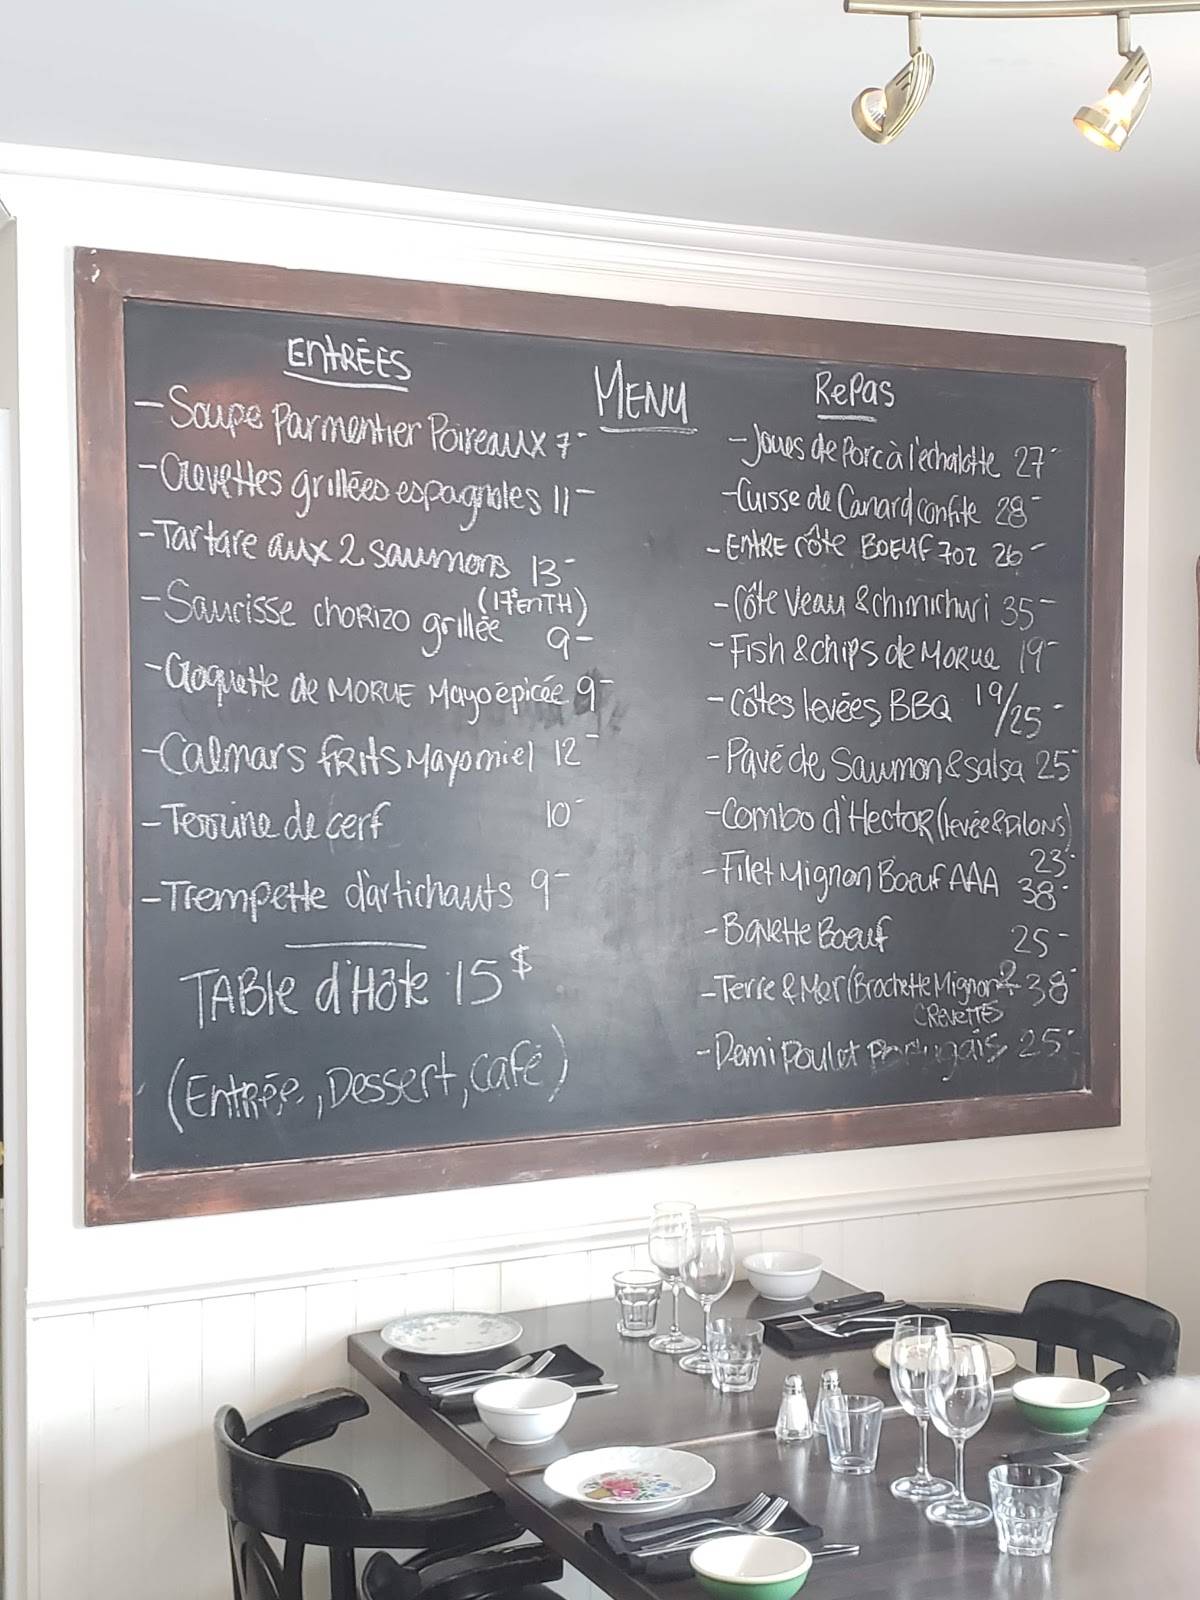 ENTRÉES
- Soupe Parmentier Poireaux 7-
- Crevettes grillées espagnoles 11-
- Tartare aux 2 saumons 13-
(17$ EN TH)
- Saucisse chorizo grillée 9-
- Croquette de MORUE Mayo épicée 9-
- Calmars frits Mayo miel 12-
- Terrine de cerf 10-
- Trempette d'artichauts 9-
TABLE d'Hôte 15$
(Entrée, Dessert, Café)
MENU
Repas
- Joues de Porc à l'échalotte 27-
- Cuisse de Canard confite 28-
- ENTRE côte BOEUF 7oz 26-
- Côte Veau & chimichuri 35-
- Fish & chips de MORUE 19-
- Côtes levées BBQ 19/25-
- Pavé de Saumon & salsa 25-
- Combo d'Hector (levée & PILONS)
23-
- Filet Mignon Boeuf AAA 38-
- Bavette Boeuf 25-
- Terre & Mer (Brochette Mignon & 38-
CREVETTES
- Demi Poulet Portugais 25-